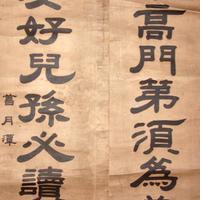 高門第須為
好兒孫必讀
月潭